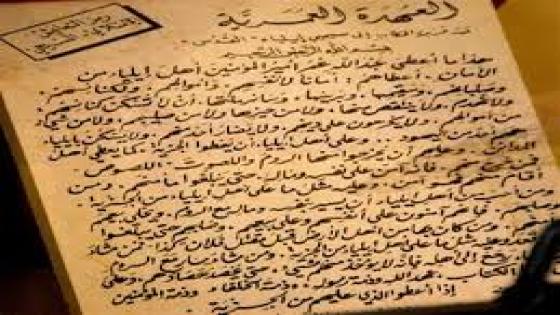 العهدة العمرية
إيلياء - القدس
بسم الله الرحمن الرحيم
هذا ما أعطى عبد الله عمر أمير المؤمنين أهل إيلياء من
الأمان. أعطاهم أمانا لأنفسهم وأموالهم، ولكنائسهم
وصلبانهم، وسقيمها وبريئها وسائر ملتها. أن لا تسكن كنائسهم
ولا تهدم، ولا ينتقص منها ولا من حيزها ولا من صليبهم، ولا من شيء
من أموالهم، ولا يكرهون على دينهم، ولا يضار أحد منهم، ولا يسكن بإيلياء
معهم أحد من اليهود، وعلى أهل إيلياء أن يعطوا الجزية كما يعطي أهل
المدائن، أن يخرجوا منها الروم واللصوت "اللصوص"
فمن خرج منهم فإنه آمن على نفسه وماله حتى يبلغوا مأمنهم، ومن
أقام منهم وعليه مثل ما على أهل إيلياء من الجزية
من أهل إيلياء أن يسير بنفسه وماله مع الروم
فإنهم آمنون على أنفسهم وعلى حتى يبلغوا
ومن كان بها من أهل الأرض قبل مقتل فلان فمن شاء
وعليه مثل ما على أهل إيلياء من الجزية، ومن شاء سار مع الروم
رجع إلى أهله فإنه لا يؤخذ منهم شيء حتى يحصد حصادهم، وعلى
الكتاب عهد الله وذمة رسوله وذمة الخلفاء وذمة المؤمنين
إذا أعطوا الذي عليهم من الجزية